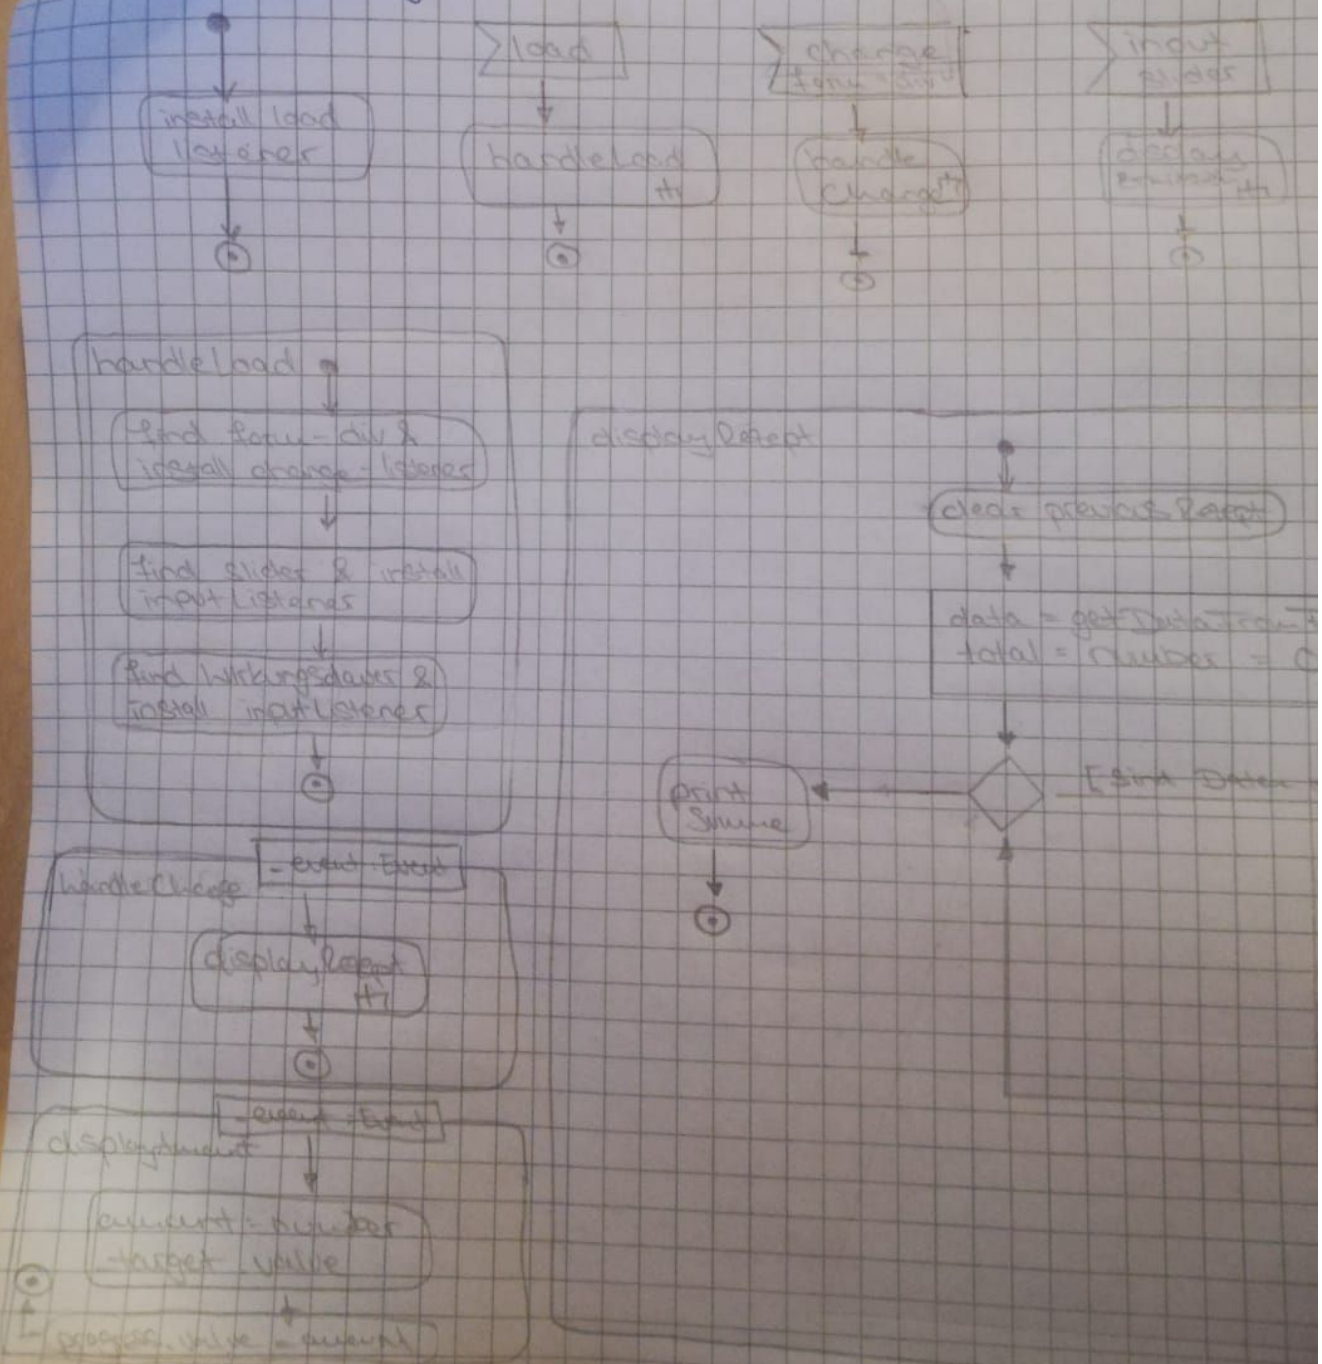 install load
listener
load
handleLoad
change
form-div
handle
Change
input
slider
display
handleLoad
find form-div &
install change-listener
find slider & install
input Listener
find Wirkungsdauer &
install input Listener
handleChange
_event: Event
displayRezept
displayAmount
_event: Event
amount = number
target value
progress.value = amount
displayRezept
clear previous Rezept
data = getDataFrom
total = number = 0
[sind Daten
print
Summe